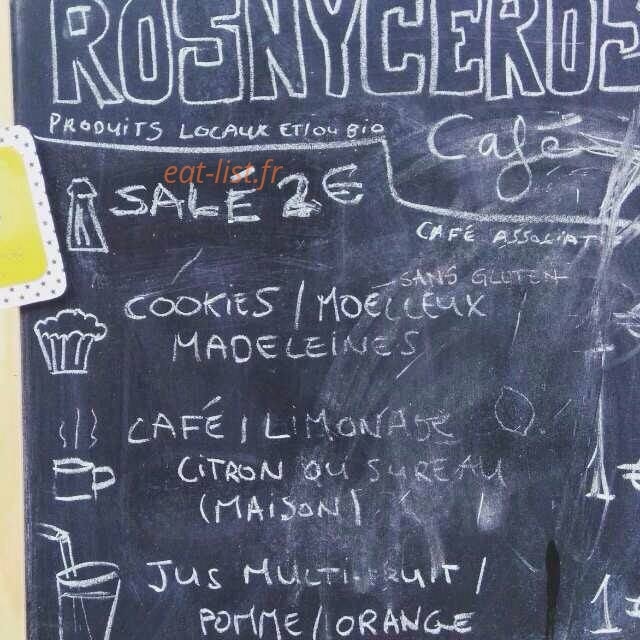 ROSNYCEROS
PRODUITS LOCAUX ET/OU BIO
Café
eat-list.fr
SALÉ 2€
CAFÉ ASSOCIAT
SANS GLUTEN
COOKIES / MOELLEUX
MADELEINES
CAFÉ / LIMONADE
CITRON OU SUREAU 1€
(MAISON)
JUS MULTIFRUIT /
POMME / ORANGE 1